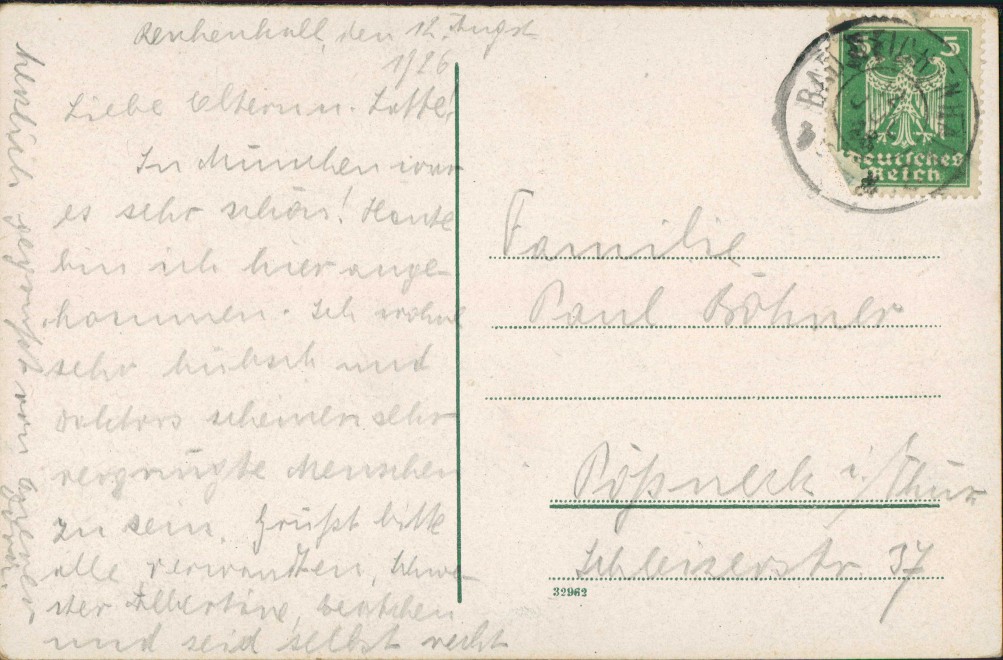 Reichenhall, den 12. August
1926
Liebe Eltern u. Lotte!
In München war
es sehr schön! Heute
bin ich hier ange-
kommen. Ich wohne
sehr hübsch und
Doktors scheinen sehr
vergnügte Menschen
zu sein. Grüßt bitte
alle Verwandten, Schwe-
ster Albertine,
und seid selbst recht
herzlich gegrüßt von
5 5
Deutsches
Reich
BAD REICHENHALL
Familie
Paul Böhner
Pößneck i/Thür
Schleizerstr. 37
32962